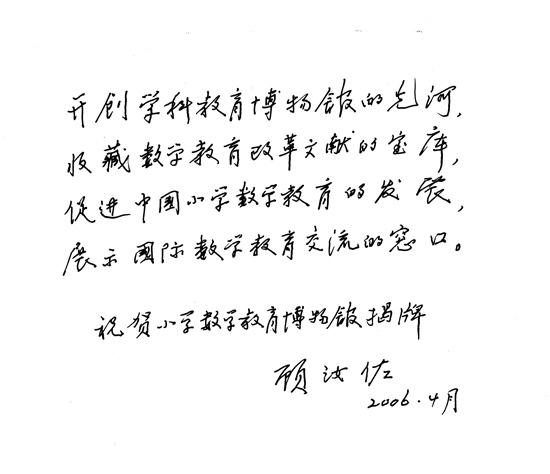 开创学科教育博物馆的先河，
收藏数学教育改革文献的宝库，
促进中国小学数学教育的发展，
展示国际数学教育交流的窗口。
祝贺小学数学教育博物馆揭牌
顾汝佐
2006.4月